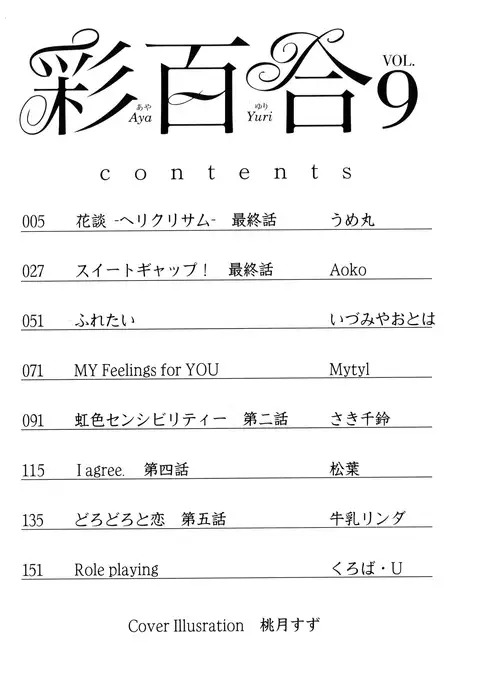 彩百合 VOL. 9
あや ゆり
Aya Yuri
contents
005 花談 -ヘリクリサム- 最終話 うめ丸
027 スイートギャップ！ 最終話 Aoko
051 ふれたい いづみやおとは
071 MY Feelings for YOU Mytyl
091 虹色センシビリティー 第二話 さき千鈴
115 I agree. 第四話 松葉
135 どろどろと恋 第五話 牛乳リンダ
151 Role playing くろば・U
Cover Illusration 桃月すず